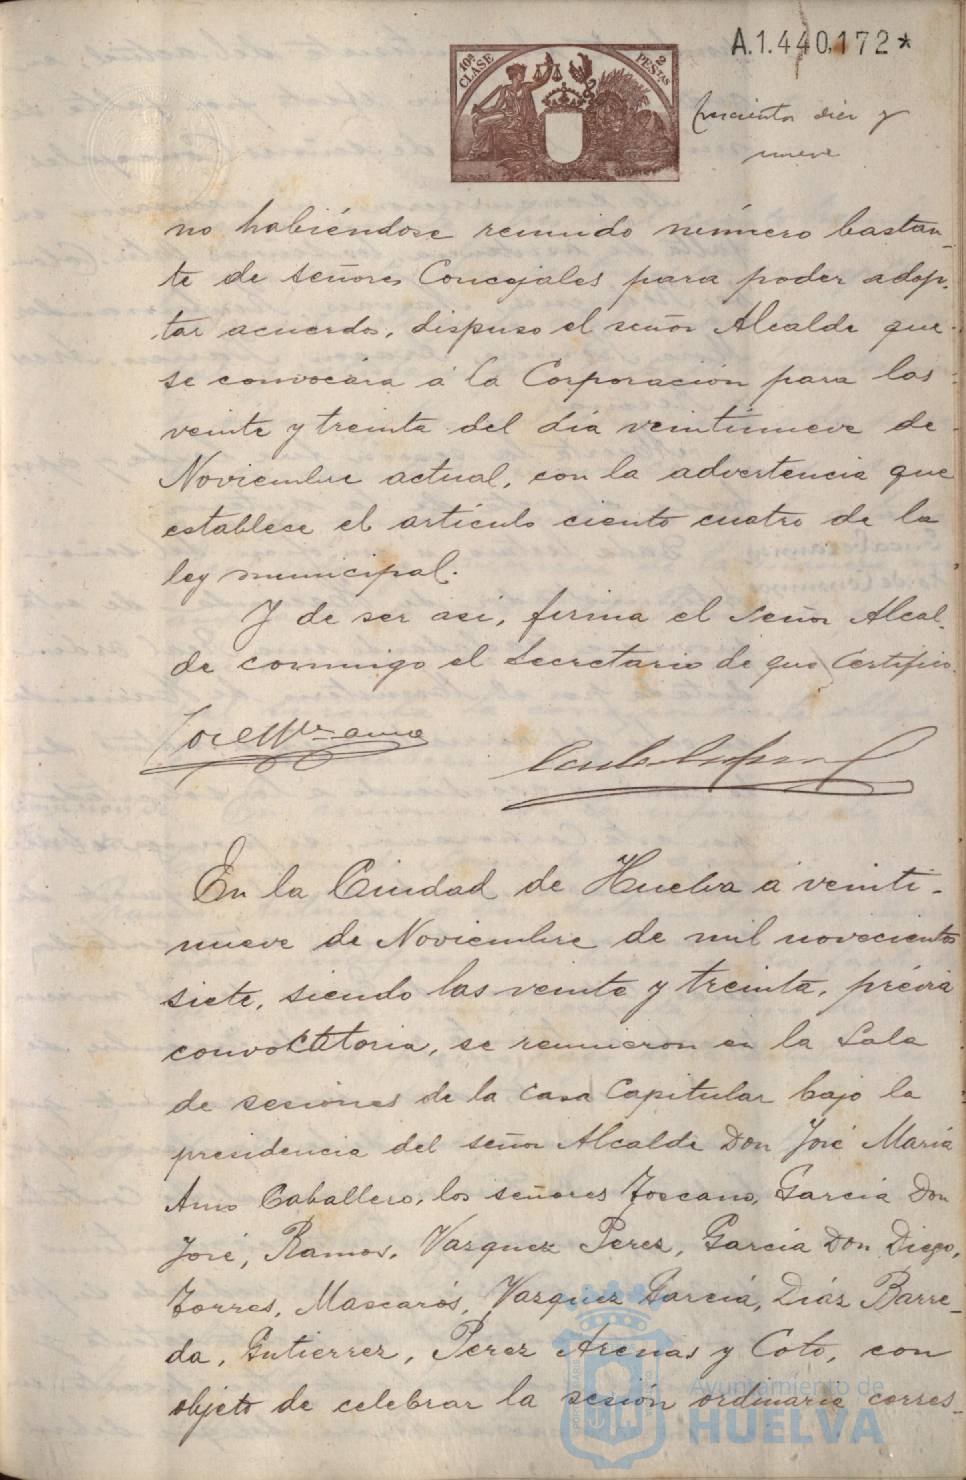 A.1.440,172*
10ª CLASE
2 PESTAS
trescientos diez y
nueve
no habiéndose reunido número bastan-
te de señores Concejales para poder adop-
tar acuerdo, dispuso el señor Alcalde que
se convocára á la Corporación para las
veinte y treinta del día veintinueve de
Noviembre actual, con la advertencia que
establece el artículo ciento cuatro de la
ley municipal.
Y de ser así, firma el Señor Alcal-
de conmigo el Secretario de que Certifico.
En la Ciudad de Huelva á veinti-
nueve de Noviembre de mil novecientos
siete, siendo las veinte y treinta, prévia
convocatoria, se reunieron en la Sala
de sesiones de la casa Capitular bajo la
presidencia del señor Alcalde Don José María
Amo Caballero, los señores Toscano, García Don
José, Ramos, Vazquez Perez, García Don Diego,
Torres, Mascarós, Vazquez García, Diáz Barre-
da, Gutierrez, Perez Arenas y Coto, con
objeto de celebrar la sesión ordinaria corres-
Ayuntamiento de
HUELVA